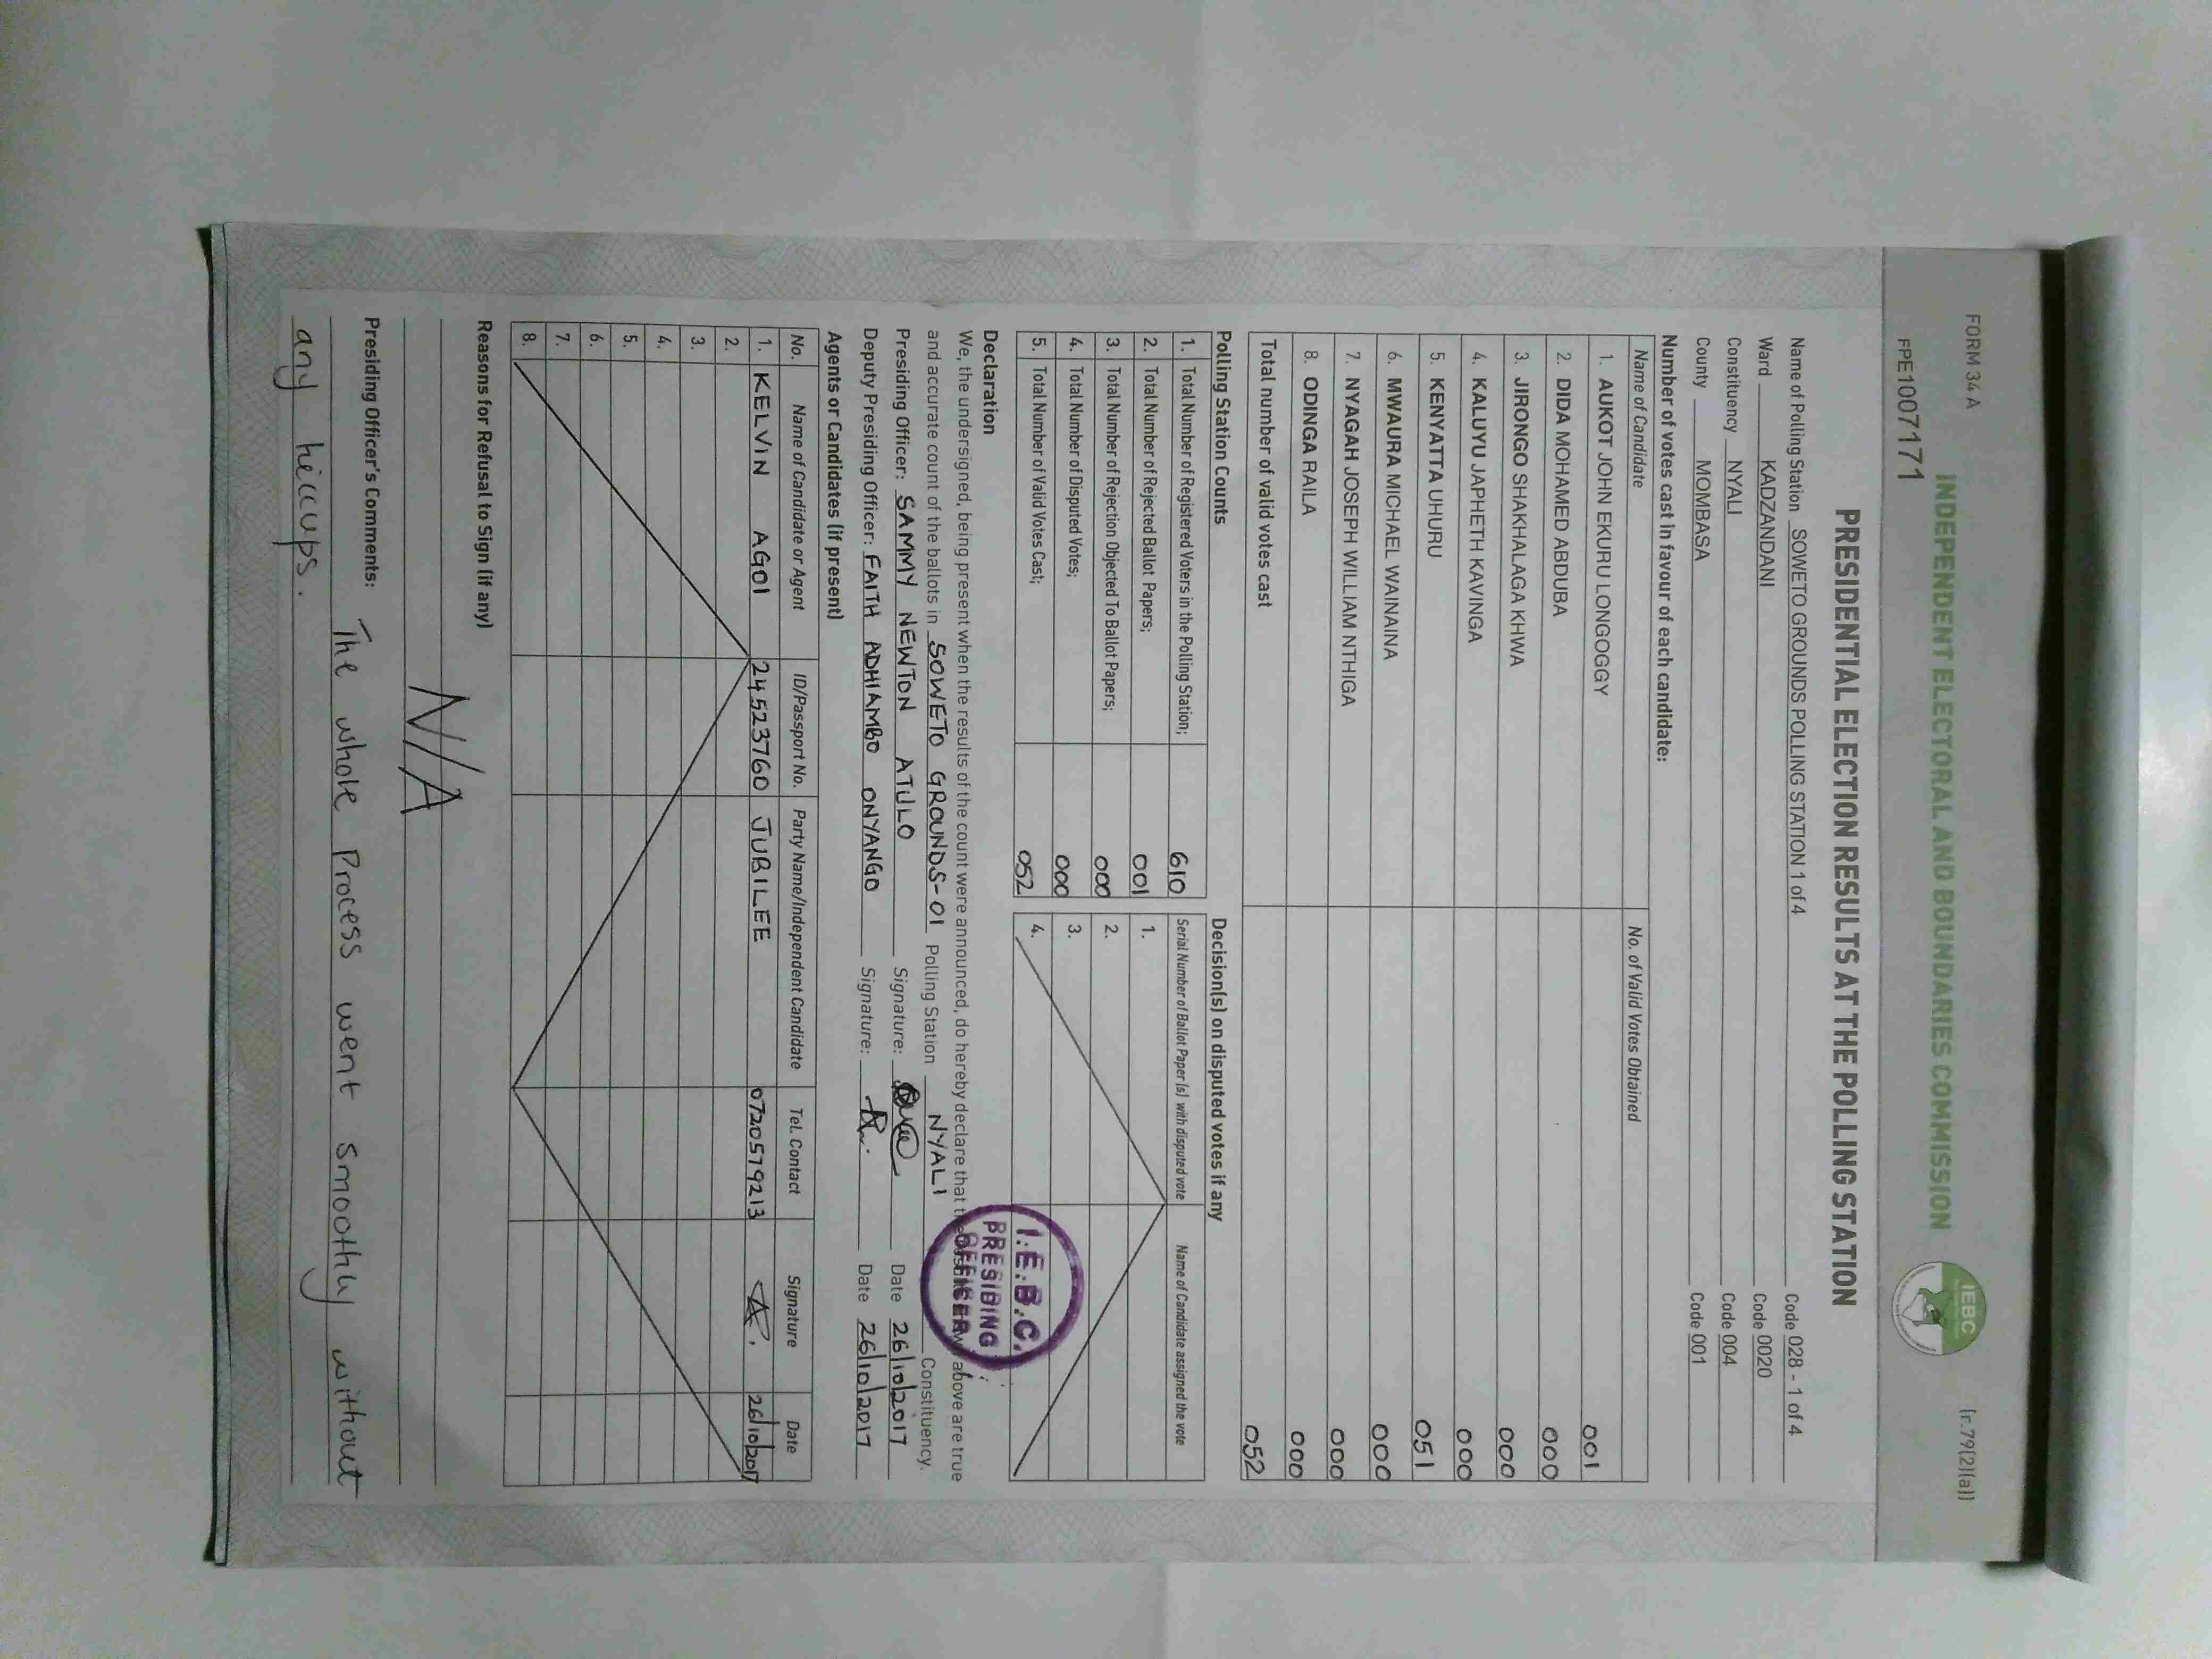 FORM 34 A
INDEPENDENT ELECTORAL AND BOUNDARIES COMMISSION
IEBC
(r.79(2)(a))
FPE1007171
PRESIDENTIAL ELECTION RESULTS AT THE POLLING STATION
Name of Polling Station SOWETO GROUNDS POLLING STATION 1 of 4 Code 028 - 1 of 4
Ward KADZANDANI Code 0020
Constituency NYALI Code 004
County MOMBASA Code 001
Number of votes cast in favour of each candidate:
Name of Candidate No. of Valid Votes Obtained
1. AUKOT JOHN EKURU LONGOGGY 001
2. DIDA MOHAMED ABDUBA 000
3. JIRONGO SHAKHALAGA KHWA 000
4. KALUYU JAPHETH KAVINGA 000
5. KENYATTA UHURU 051
6. MWAURA MICHAEL WAINAINA 000
7. NYAGAH JOSEPH WILLIAM NTHIGA 000
8. ODINGA RAILA 000
Total number of valid votes cast 052
Polling Station Counts
1. Total Number of Registered Voters in the Polling Station; 610
2. Total Number of Rejected Ballot Papers; 001
3. Total Number of Rejection Objected To Ballot Papers; 000
4. Total Number of Disputed Votes; 000
5. Total Number of Valid Votes Cast; 052
Decision(s) on disputed votes if any
Serial Number of Ballot Paper (s) with disputed vote Name of Candidate assigned the vote
1.
2.
3.
4.
I.E.B.C.
PRESIDING
OFFICER
Declaration
We, the undersigned, being present when the results of the count were announced, do hereby declare that the above are true
and accurate count of the ballots in SOWETO GROUNDS-01 Polling Station NYALI Constituency.
Presiding Officer: SAMMY NEWTON ATULO Signature: Date 26/10/2017
Deputy Presiding Officer: FAITH ADHIAMBO ONYANGO Signature: Date 26/10/2017
Agents or Candidates (if present)
No. Name of Candidate or Agent ID/Passport No. Party Name/Independent Candidate Tel. Contact Signature Date
1. KELVIN AGOI 24523760 JUBILEE 0720579213 26/10/2017
2.
3.
4.
5.
6.
7.
8.
Reasons for Refusal to Sign (if any)
N/A
Presiding Officer's Comments: The whole Process went smoothly without
any hiccups.